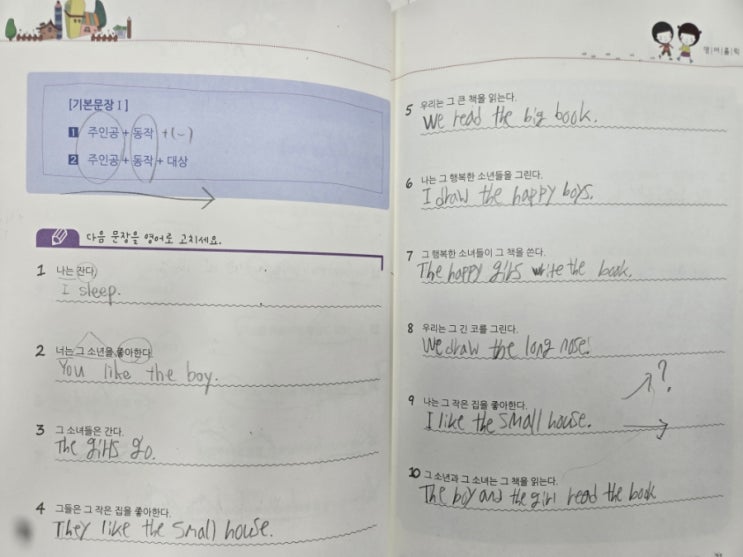 영|어|홀|릭
[기본문장 I]
1 주인공 + 동작 + (~)
2 주인공 + 동작 + 대상
다음 문장을 영어로 고치세요.
1 나는 잔다.
I sleep.
2 너는 그 소년을 좋아한다.
You like the boy.
3 그 소녀들은 간다.
The girls go.
4 그들은 그 작은 집을 좋아한다.
They like the small house.
5 우리는 그 큰 책을 읽는다.
We read the big book.
6 나는 그 행복한 소년들을 그린다.
I draw the happy boys.
7 그 행복한 소녀들이 그 책을 쓴다.
The happy girls write the book.
8 우리는 그 긴 코를 그린다.
We draw the long nose.
?
9 나는 그 작은 집을 좋아한다.
I like the small house.
10 그 소년과 그 소녀는 그 책을 읽는다.
The boy and the girl read the book